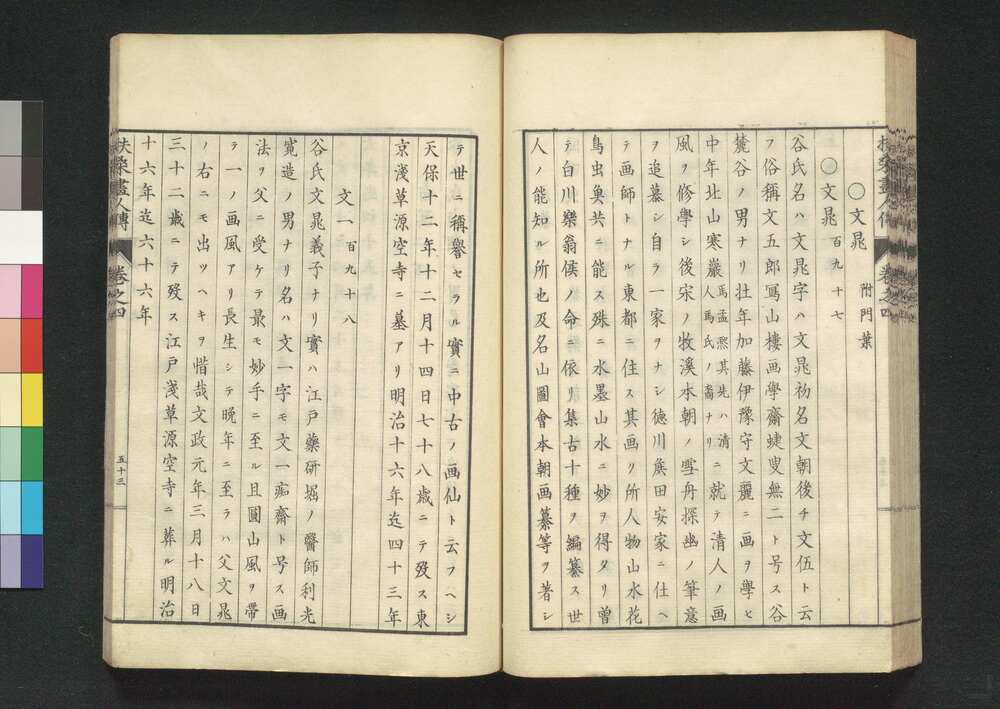 扶桑畫人傳 卷之四
〇文晁 附門葉
〇文晁 百九十七
谷氏名ハ文晁字ハ文晁初名文朝後チ文伍ト云
フ俗稱文五郎寫山樓画學齋蜨叟無二ト号ス谷
麓谷ノ男ナリ壯年加藤伊豫守文麗ニ画ヲ學ヒ
中年北山寒巖馬孟熙其先ハ清人馬氏ノ裔ナリニ就テ清人ノ画
風ヲ修學シ後宋ノ牧溪本朝ノ雪舟探幽ノ筆意
ヲ追慕シ自ラ一家ヲナシ德川族田安家ニ仕ヘ
テ画師トナル東都ニ住ス其画リ所人物山水花
鳥虫奠共ニ能ス殊ニ水墨山水ニ妙ヲ得タリ曽
テ白川樂翁侯ノ命ニ依リ集古十種ヲ編纂ス世
人ノ能知ル所也及名山圖會本朝画纂等ヲ著シ
テ世ニ稱譽セラル實ニ中古ノ画仙ト云フヘシ
天保十二年十二月十四日七十八歳ニテ歿ス東
京淺草源空寺ニ墓アリ明治十六年迄四十三年
文一 百九十八
谷氏文晁義子ナリ實ハ江戸藥研堀ノ醫師利光
寛造ノ男ナリ名ハ文一字モ文一痴齋ト号ス画
法ヲ父ニ受ケテ最モ妙手ニ至ル且圓山風ヲ帶
テ一ノ画風アリ長生シテ晩年ニ至ラハ父文晁
ノ右ニモ出ツヘキヲ惜哉文政元年三月十八日
三十二歳ニテ歿ス江戸淺草源空寺ニ葬ル明治
十六年迄六十六年
扶桑畫人傳 卷之四 五十三